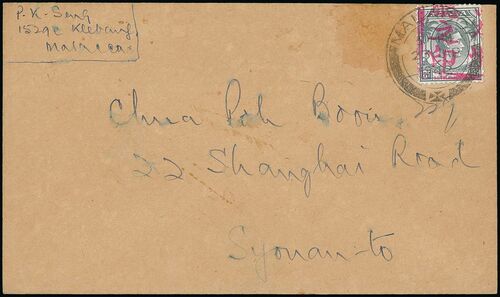 P. K. Seng
1529C Klebang,
Malacca.
Chua Poh Boon, Esq
22 Shanghai Road
Syonan-to